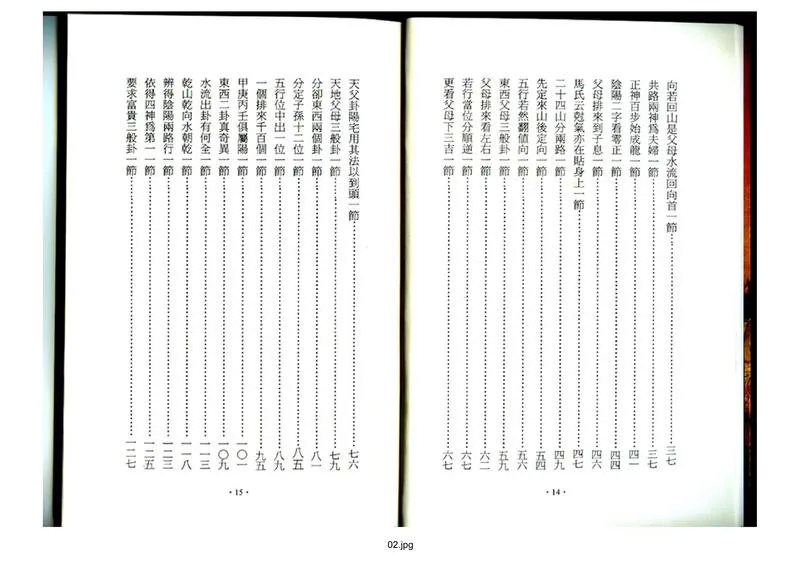 向若回山是父母水流回向首一節……三七
共路兩神爲夫婦一節……三七
正神百步始成龍一節……四一
陰陽二字看零正一節……四四
父母排來到子息一節……四六
馬氏云剋氣亦在貼身上一節……四七
二十四山分兩路一節……四九
先定來山後定向一節……五四
五行若然翻値向一節……五六
東西父母三般卦一節……五九
父母排來看左右一節……六二
若行當位分順逆一節……六七
更看父母下三吉一節……六七
·14·
天父卦陽宅用其法以到頭一節……七六
天地父母三般卦一節……七九
分卻東西兩個卦一節……八一
分定子孫十二位一節……八五
五行位中出一位一節……八九
一個排來千百個一節……九五
甲庚丙壬俱屬陽一節……一〇一
東西二卦真奇異一節……一〇九
水流出卦有何全一節……一一三
乾山乾向水朝乾一節……一一八
辨得陰陽兩路行一節……一二三
依得四神爲第一一節……一二五
要求富貴三般卦一節……一二七
·15·
02.jpg